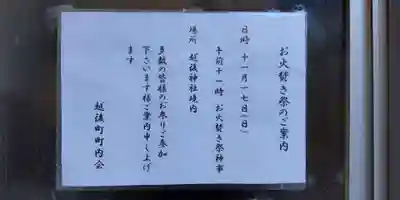 お火焚き祭のご案内
日時 十一月一七日(日)
午前十一時 お火焚き祭神事
場所 越後神社境内
多数の皆様のお参りご参加
下さいます様ご案内申し上げ
ます
越後町町内会